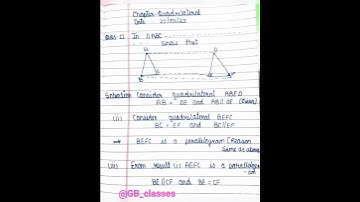 Chapter- Quadrilateral
Date - 21/09/22
Ques-11 In △ABC
Show that
A D
B E
Solution Consider quadrilateral ABED
AB = DE and AB || DE (Given)
(ii) Consider quadrilateral BEFC
BC = EF and BC || EF
→ BEFC is a parallelogram (Reason
same as above
(iii) From result (ii) BEFC is a parallelogram
BE || CF and BE = CF
@GB_classes